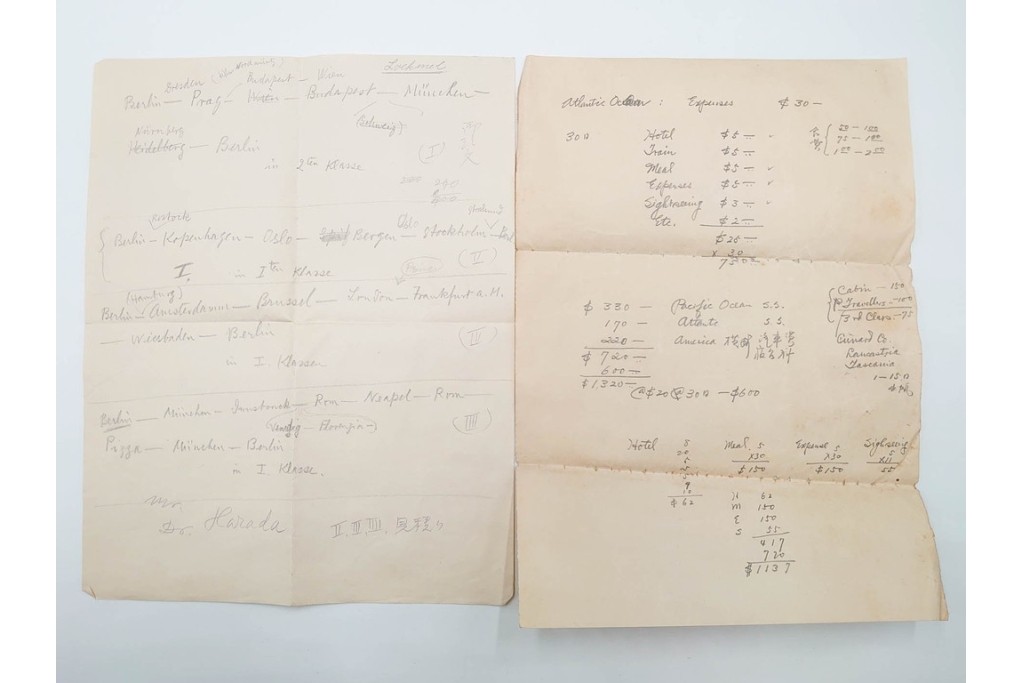 Lochmol
Dresden
Budapest — Wien
Berlin — Prag — Wien — Budapest — München —
(Schweiz)
Nürnberg
Heidelberg — Berlin
(I)
in 2ten Klasse
240
Rostock
Oslo
Berlin — Kopenhagen — Oslo — Bergen — Stockholm —
I.
in Iten Klasse
(II)
(Hamburg)
Berlin — Amsterdamm — Brussel — London — Frankfurt a. M.
— Wiesbaden — Berlin
(III)
in I. Klassen
Berlin — München — Innsbruck — Rom — Neapol — Rom —
Venedig — Florenzia —
(IIII)
Pizza — München — Berlin
in I. Klasse.
Dr. Harada
II, III, IIII,
Atlantic Ocean : Expenses $ 30 —
30日 Hotel $ 5 —
Train $ 5 —
Meal $ 5 —
Expenses $ 5 —
Sightseeing $ 3 —
Etc. $ 2 —
$ 25 —
x 30
750
$ 380 — Pacific Ocean S.S.
170 — Atlante S.S.
220 — America 横断 汽車賃
$ 720 —
600 —
$ 1320 —
@ $20 @ 30日 — $600
Cabin — 150
Travellers — 100
3rd Class — 75
Cunard Co.
Lancastria
Tuscania
Hotel
$ 62
Meal 5
x30
$ 150
Expense 5
x30
$ 150
Sightseeing
5
x11
55
H 62
M 150
E 150
S 55
417
720
$ 1137